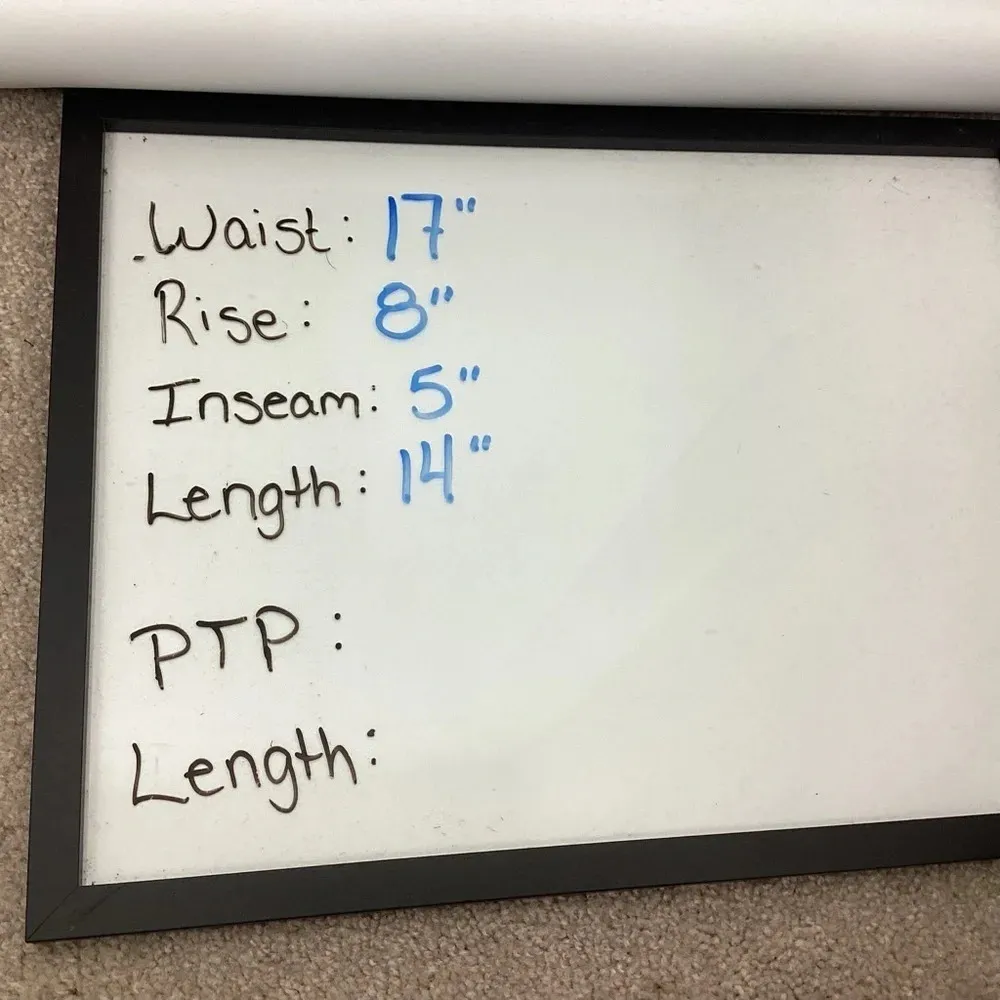 Waist: 17"
Rise: 8"
Inseam: 5"
Length: 14"
PTP:
Length: